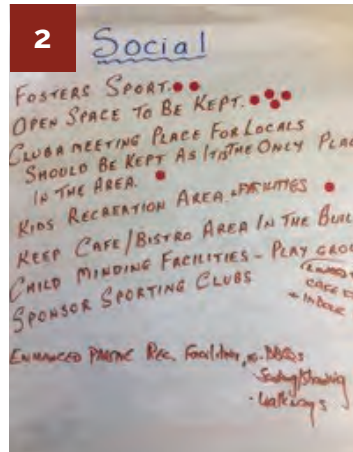 2
Social
FOSTERS SPORT.
OPEN SPACE TO BE KEPT.
CLUB A MEETING PLACE FOR LOCALS
SHOULD BE KEPT AS IT IS THE ONLY PLAC
IN THE AREA.
KIDS RECREATION AREA & FACILITIES
KEEP CAFE/BISTRO AREA IN THE BUIL
CHILD MINDING FACILITIES - PLAY GROU
CAFE
INDOOR
SPONSOR SPORTING CLUBS
ENHANCED Rec. Facilities, BBQs
Seating/Shading
Walkways